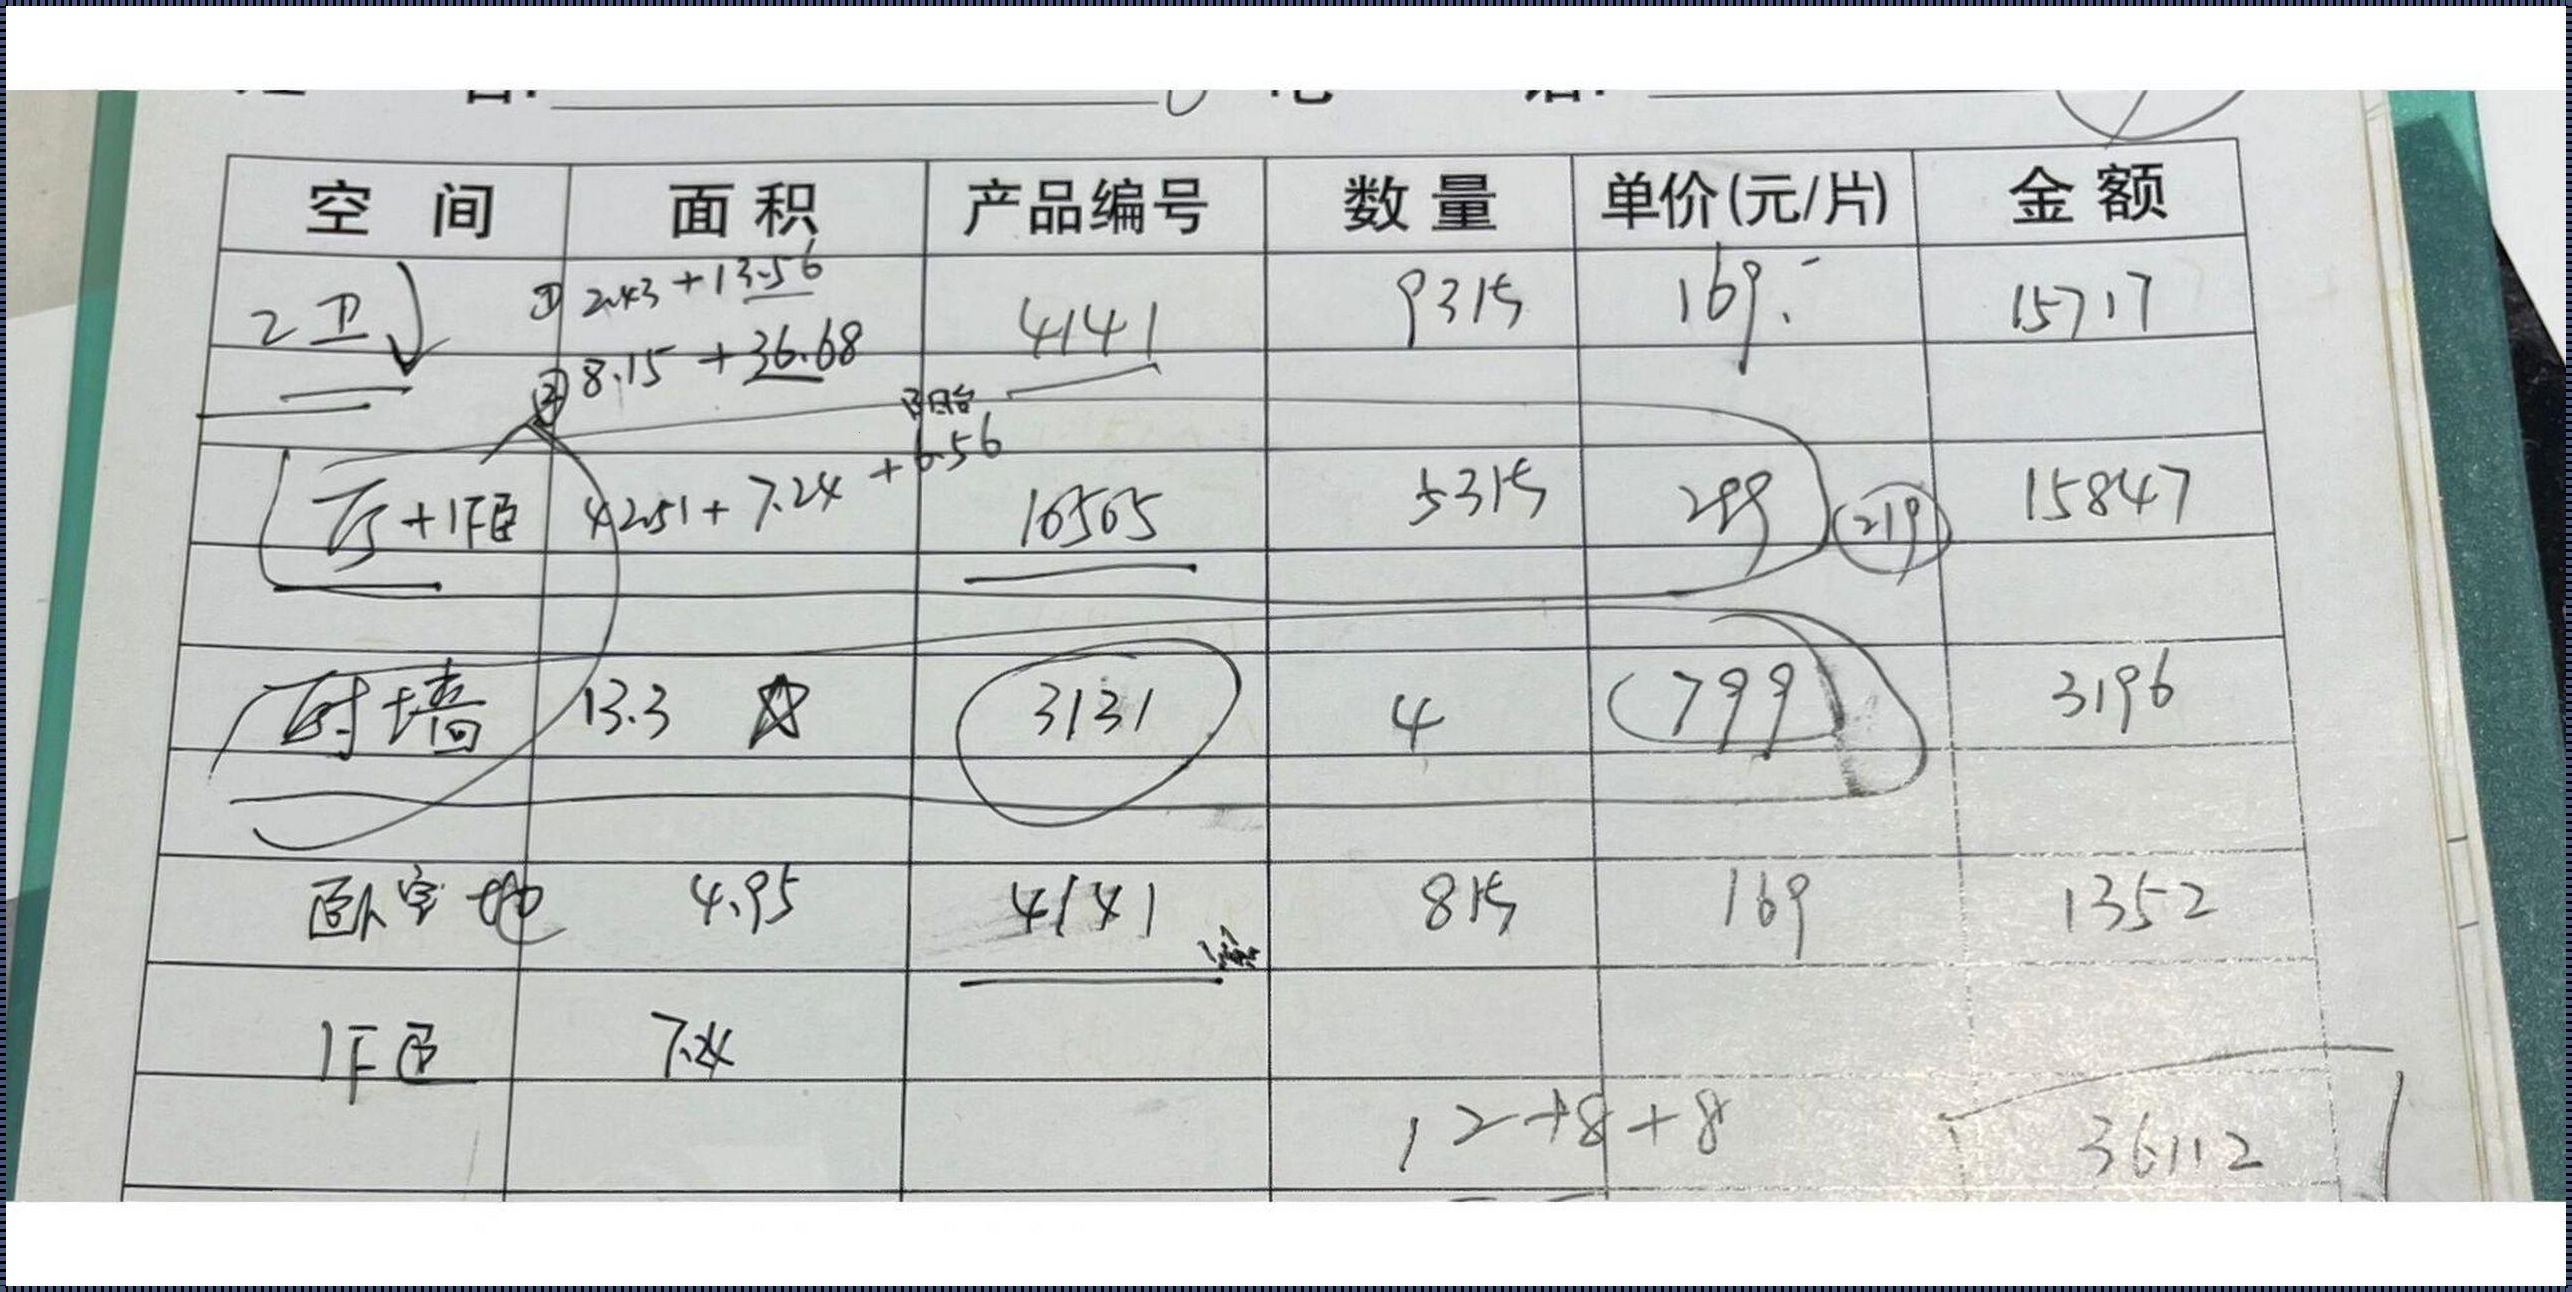 空 间 面 积 产品编号 数 量 单价(元/片) 金 额
2卫 ① 2.43+13.56 4141 93片 169.- 15717
② 8.15+36.68
阳台
厅+1卧 42.51+7.24+6.56 16565 53片 299 219 15847
墙 13.3 ☆ 3131 4 799 3196
卧室地 4.95 4141 8片 169 1352
1F 7.24
12+8+8 36112